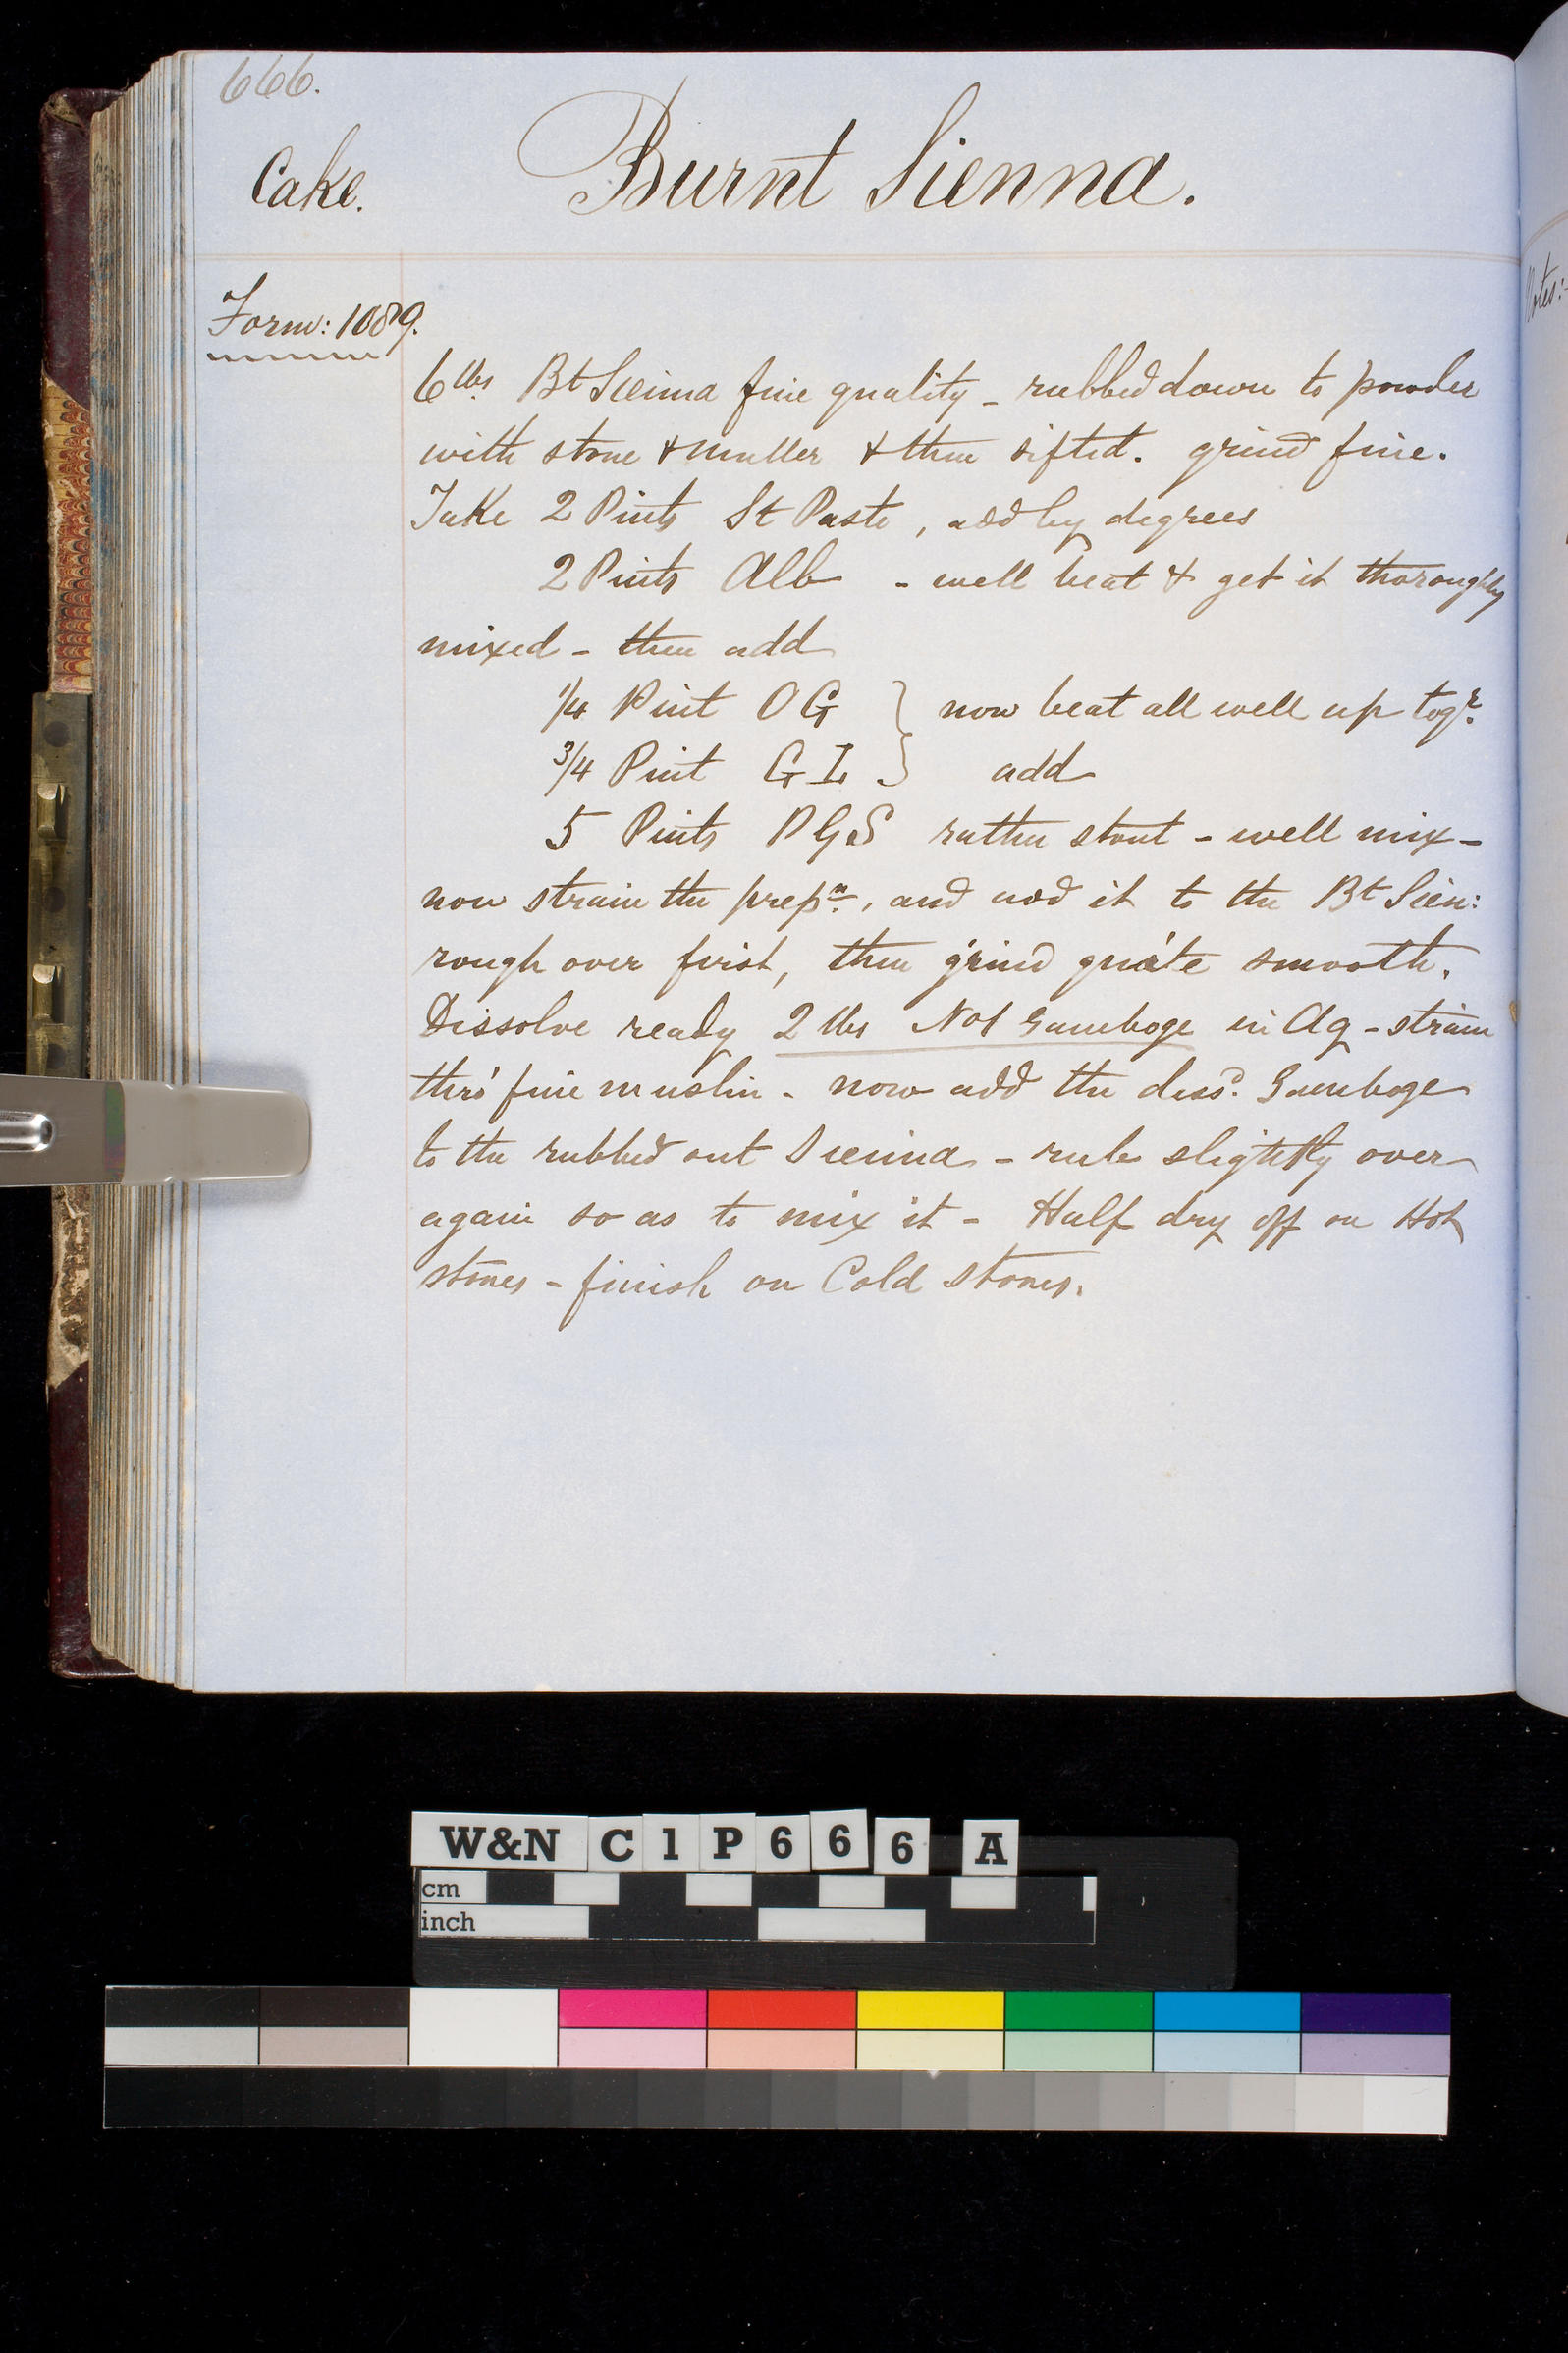 666.
Cake. Burnt Sienna.
Form: 1089.
6 lbs. Bt Sienna fine quality - rubbed down to powder
with stone & muller & then sifted. grind fine.
Take 2 Pints St Paste, add by degrees
2 Pints Alb - well beat & get it thoroughly
mixed - then add
1/4 Pint OG } now beat all well up togr.
3/4 Pint GL } add
5 Pints PGS rather stout - well mix -
now strain the prepn., and add it to the Bt Sien:
rough over first, then grind quite smooth.
Dissolve ready 2 lbs No1 Gamboge in Aq - strain
thro' fine muslin - now add the dissd. Gamboge
to the rubbed out Sienna - rub slightly over
again so as to mix it - Half dry off on Hot
stones - finish on Cold stones.
Notes:-
W&N C1P666 A
cm
inch